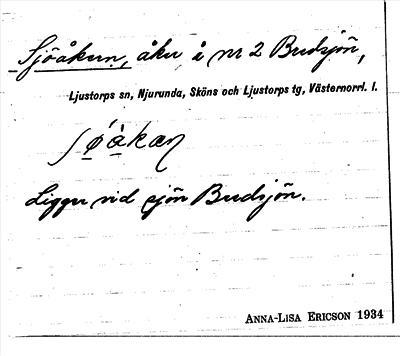 Sjöåkern, åker i nr 2 Budsjön,
Ljustorps sn, Njurunda, Sköns och Ljustorps tg, Västernorrl. l.
ʃø̀åkaɳ
Ligger vid sjön Budsjön.
ANNA-LISA ERICSON 1934